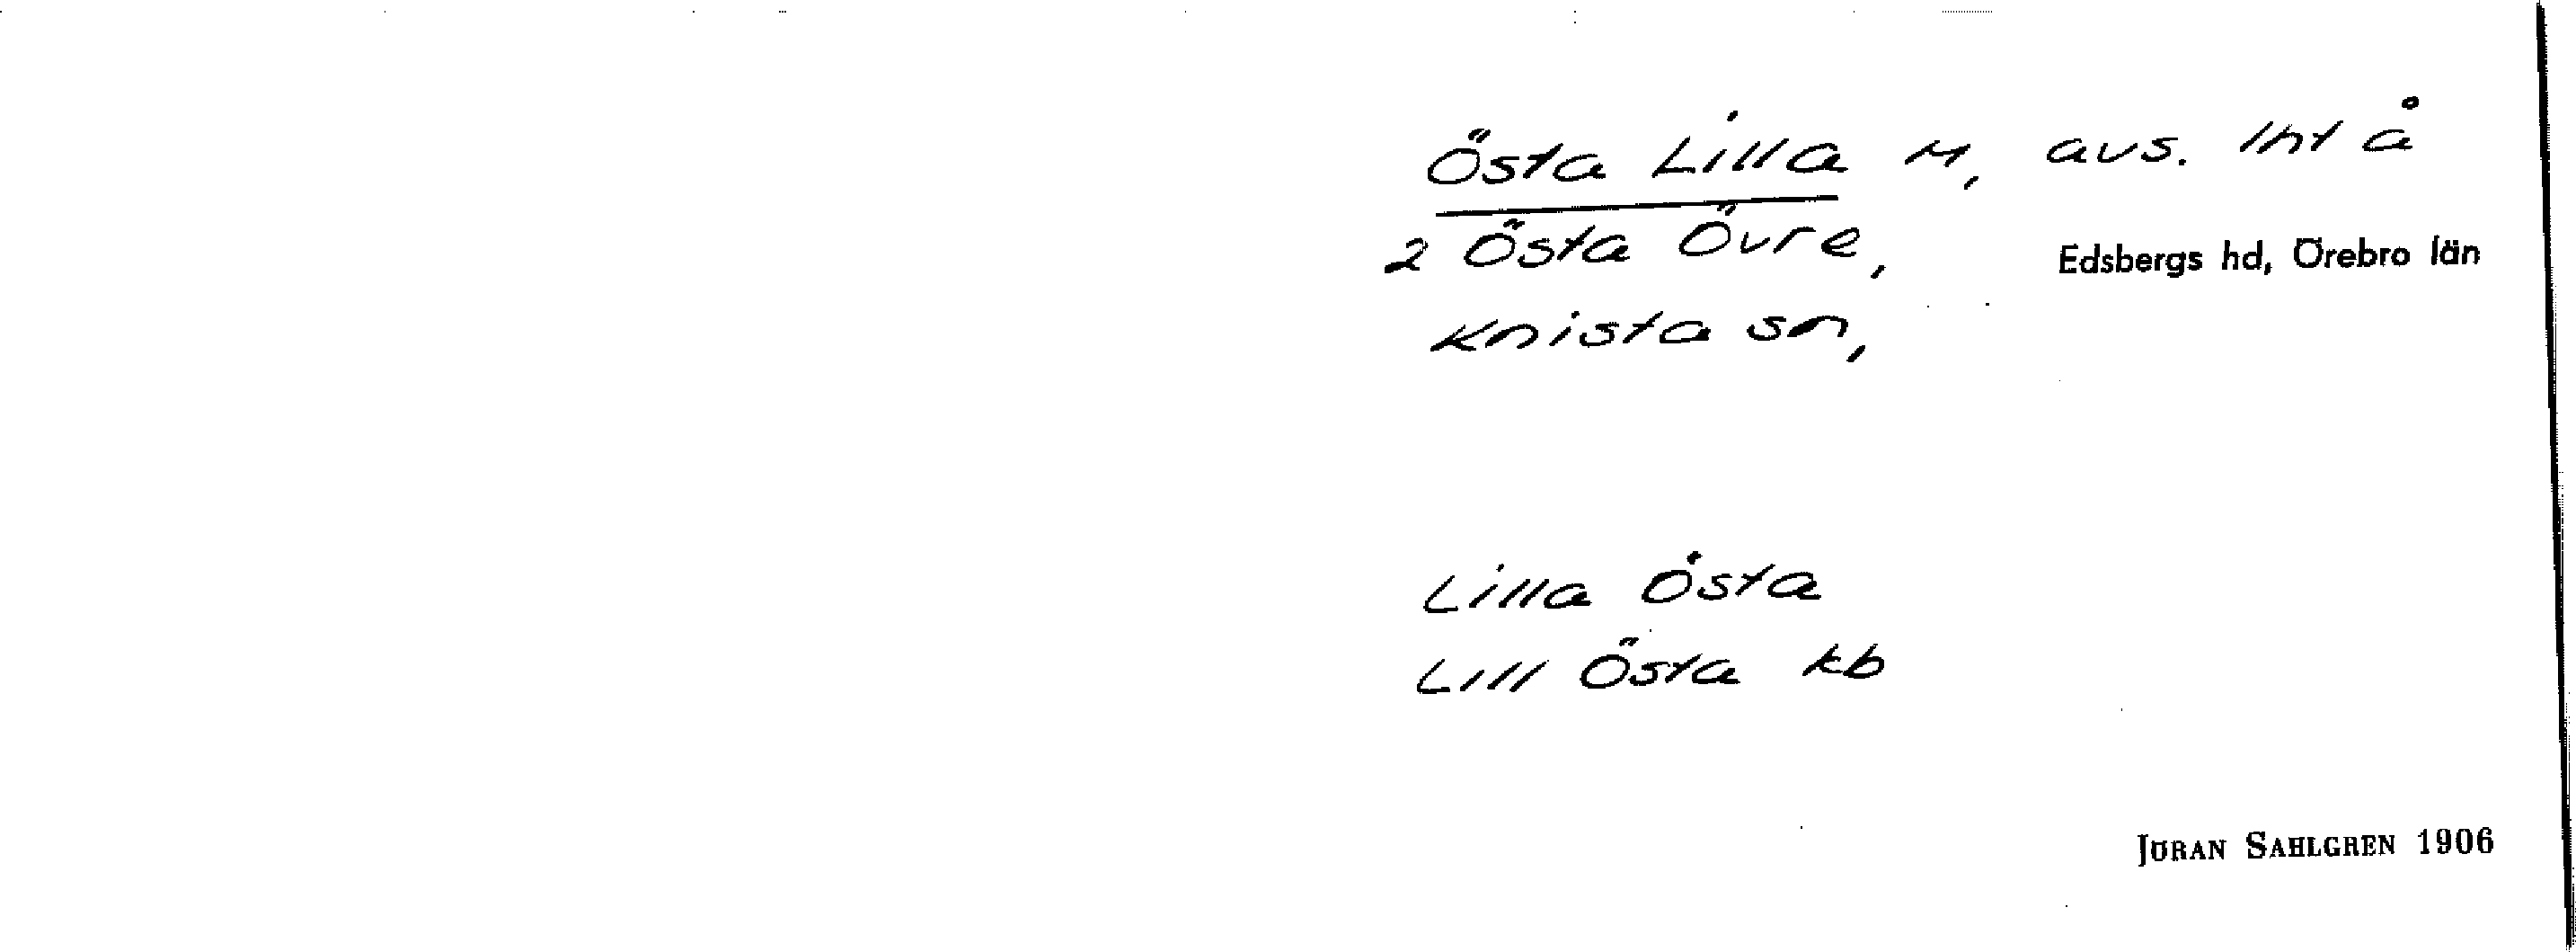 Östa Lilla M, avs. lht å
2 Östa Övre,
Edsbergs hd, Örebro län
Knista sn,
Lilla Östa
Lill Östa kb
JÖRAN SAHLGREN 1906